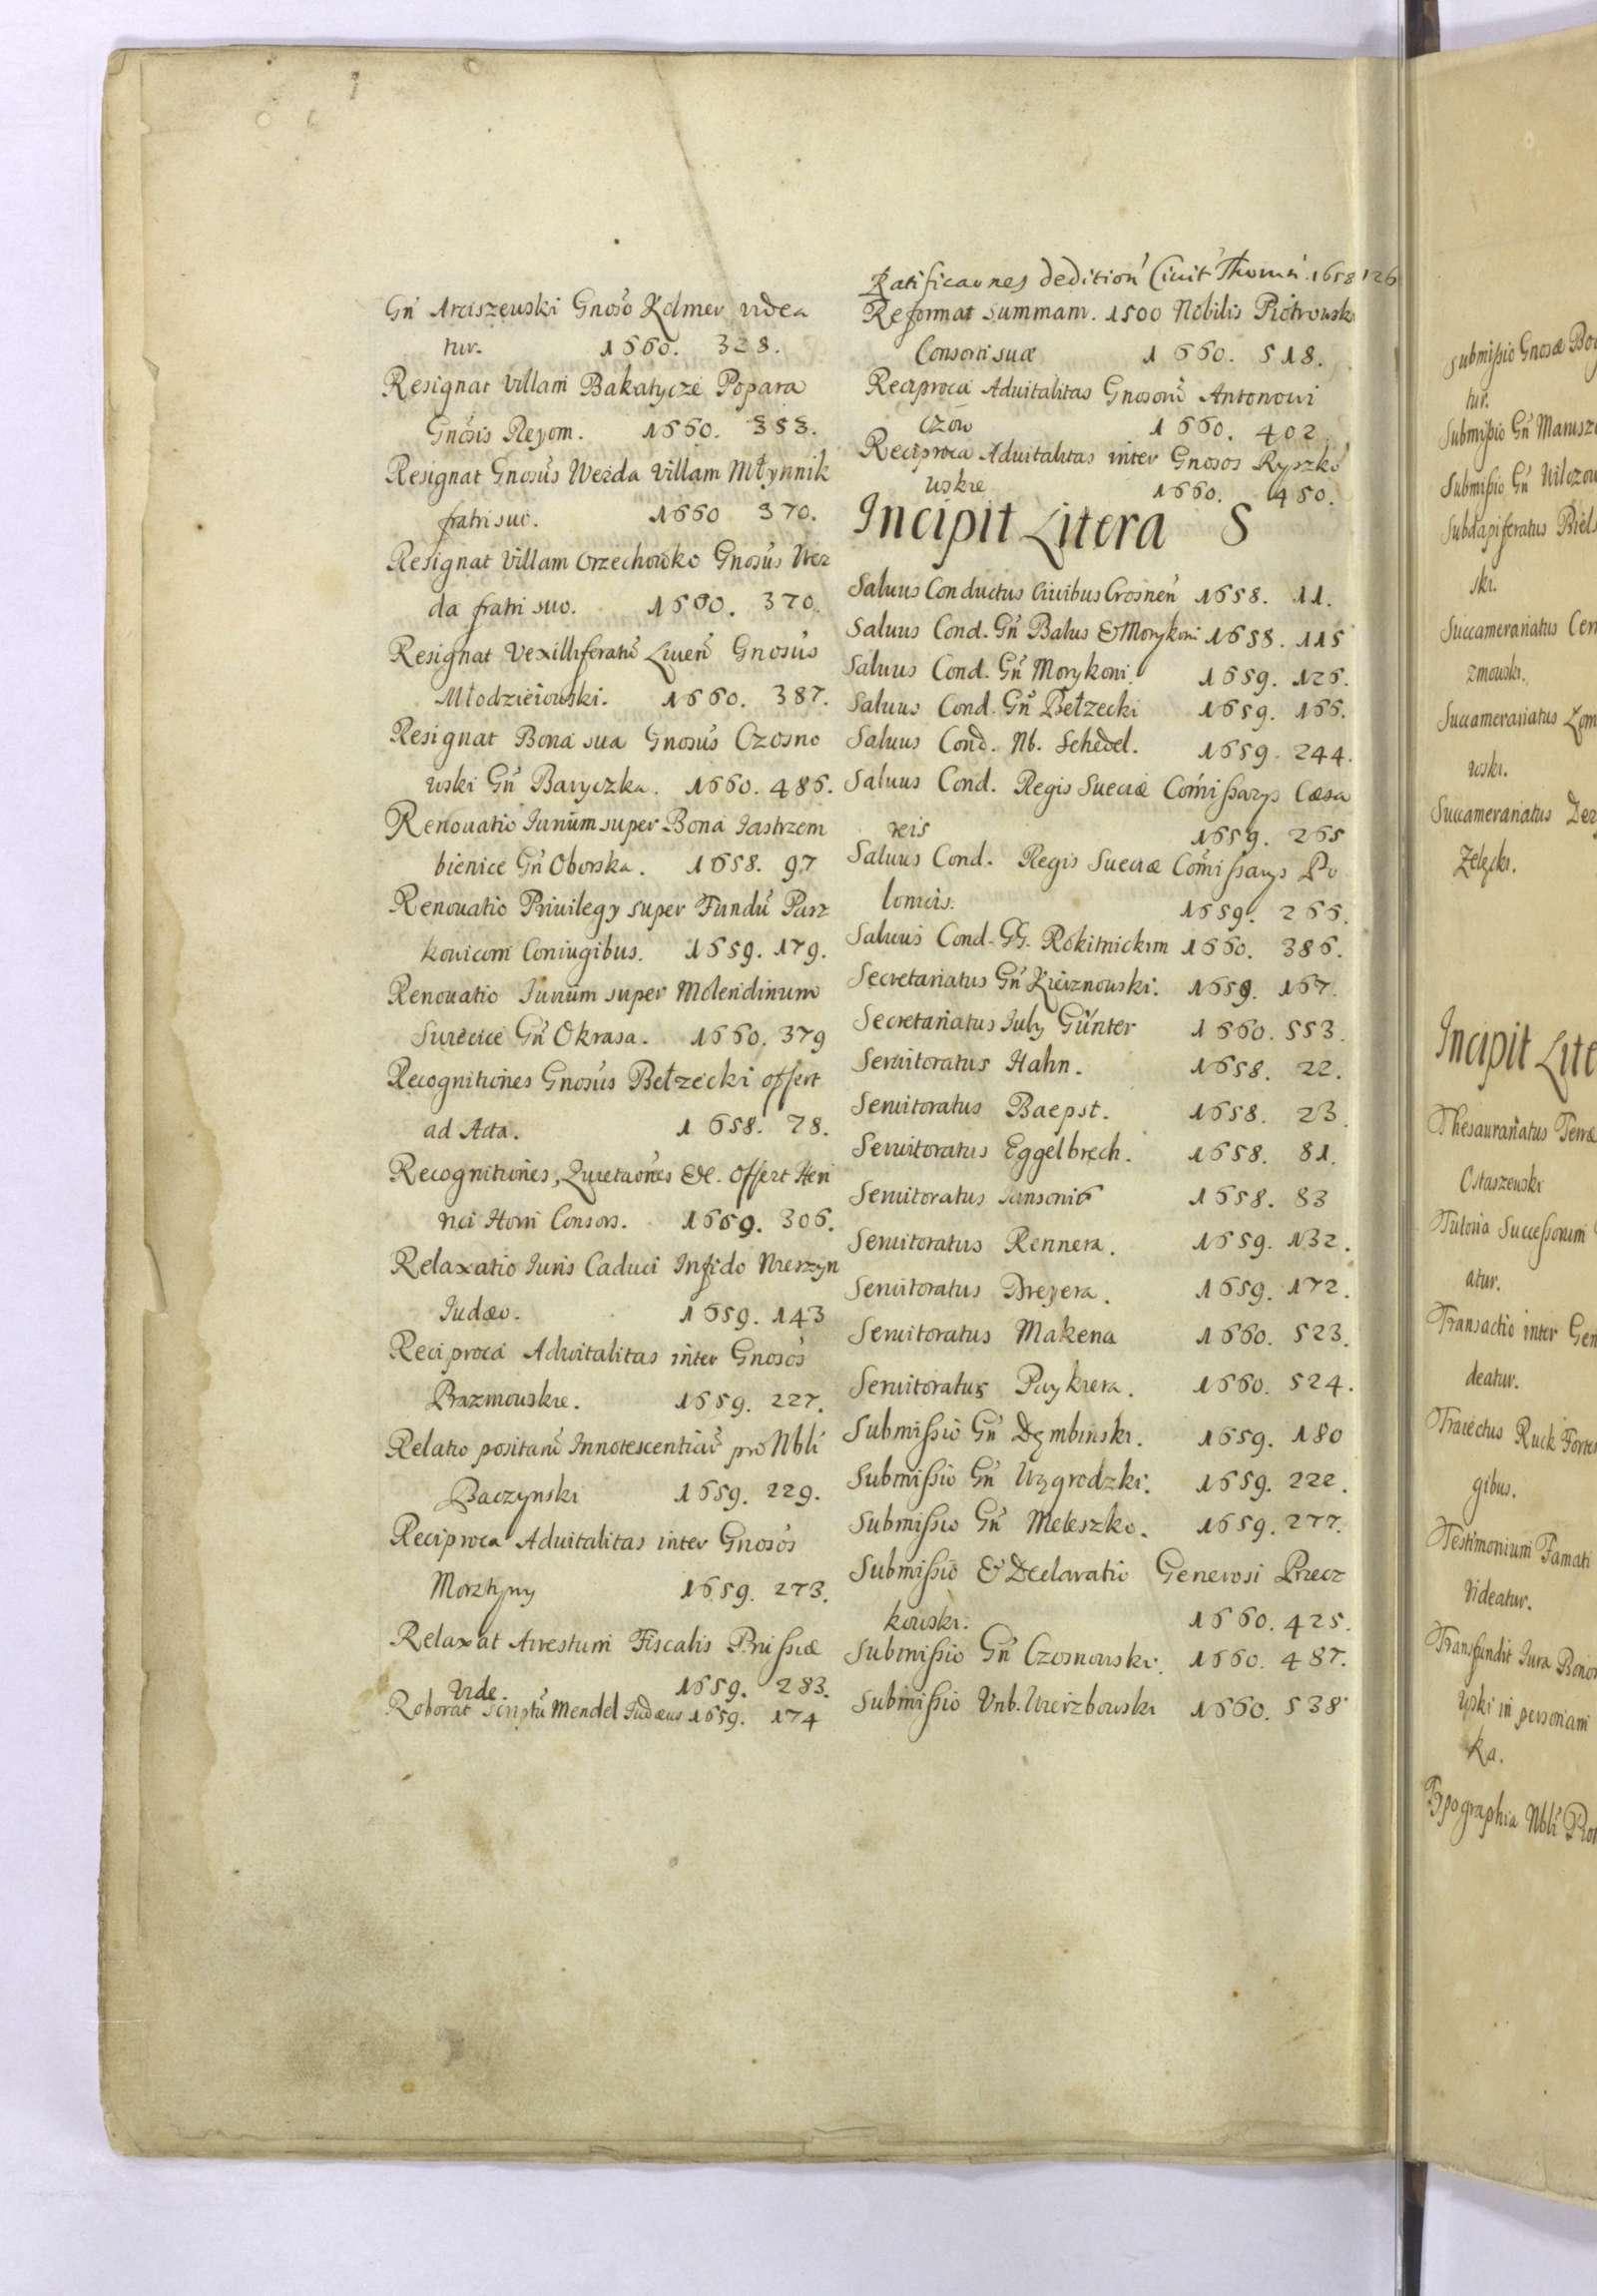 Gń Arciszewski Gnoso Kolmer videa
tur. 1660. 328.
Resignat villam Bakatycze Popara
Gnosis Reyom. 1660. 353.
Resignat Gnosus Werda villam Młynnik
fratri suo. 1660 370.
Resignat villam Orzechowko Gnosus Wer
da fratri suo. 1660. 370.
Resignat Vexilliferatu Liuen Gnosus
Młodzieiowski. 1660. 387.
Resignat Bona sua Gnosus Czosno
wski Gń Baryczka. 1660. 486.
Renouatio Iurium super Bona Iastrzem
bienice Gń Oborska. 1658. 97
Renouatio Priuilegy super Fundu Pasz
kowicom Coniugibus. 1659. 179.
Renouatio Iurium super Molendinum
Surecice Gń Okrasa. 1660. 379
Recognitiones Gnosus Bełzecki offert
ad Acta. 1658. 78.
Recognitiones, Quietaones &c. offert Hen
rici Horn Consors. 1659. 306.
Relaxatio Iuris Caduci Infido Nierzyn
Iudæo. 1659. 143
Reciproca Aduitalitas inter Gnosos
Prazmouskie. 1659. 227.
Relatio positaru Innotescentiaru pro Nbli
Baczynski 1659. 229.
Reciproca Aduitalitas inter Gnosos
Morztyny 1659. 273.
Relaxat Arrestum Fiscalis Prussiæ
vide. 1659. 283.
Roborat Scriptu Mendel Iudæus 1659. 174
Ratificaones dedition Ciuit Thorun. 1658 126
Reformat summam. 1500 Nobilis Piotrowski
Consorti suæ 1660. 518.
Reciproca Aduitalitas Gnosoru Antonowi
czow 1660. 402.
Reciproca Aduitalitas inter Gnosos Ryszko
wskie 1660. 450.
Incipit Litera S
Saluus Conductus Ciuibus Crosnen 1658. 11.
Saluus Cond. Gń Balus & Morykoni 1658. 115
Saluus Cond. Gń Morykoni. 1659. 126.
Saluus Cond. Gń Bełzecki 1659. 166.
Saluus Cond. Nb. Schedel. 1659. 244.
Saluus Cond. Regis Sueciæ Comissarys Cæsa
reis 1659. 265
Saluus Cond. Regis Sueciæ Comissarys Po
lonicis. 1659. 266.
Saluus Cond. GG. Rokitnickim 1660. 386.
Secretariatus Gń Kieiznowski. 1659. 167.
Secretariatus July Günter 1660. 553.
Seruitoratus Hahn. 1658. 22.
Seruitoratus Baepst. 1658. 23.
Seruitoratus Eggelbrech. 1658. 81.
Seruitoratus Iansonis 1658. 83
Seruitoratus Rennera. 1659. 132.
Seruitoratus Dreyera. 1659. 172.
Seruitoratus Makena 1660. 523.
Seruitoratus Paykiera. 1660. 524.
Submissio Gń Dembinski. 1659. 180
Submissio Gń Uzgrodzki. 1659. 222.
Submissio Gń Meleszko. 1659. 277.
Submissio & Declaratio Generosi Piecz
kowski. 1660. 425.
Submissio Gń Czosnowski. 1660. 487.
Submissio Vnb. Wierzbowski 1660. 538
Submissio Gnosæ
tur.
Submissio Gń
Submissio Gń
Subdapiferatus Biels
ski.
Succamerariatus
zmowski.
Succamerariatus
wski.
Succamerariatus
Zelęcki.
Incipit Lite
Thesaurariatus Terræ
Ostaszewski
Tutoria Successorum
atur.
Transactio inter
deatur.
Traiectus
gibus.
Testimonium Famati
videatur.
Transfundit Iura
wski in personam
ka.
Typographia Nbli